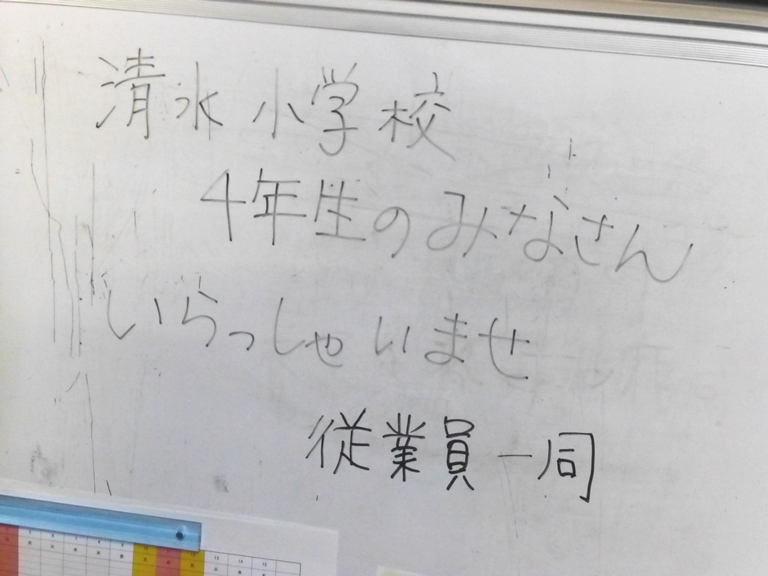 清水小学校
4年生のみなさん
いらっしゃいませ
従業員一同